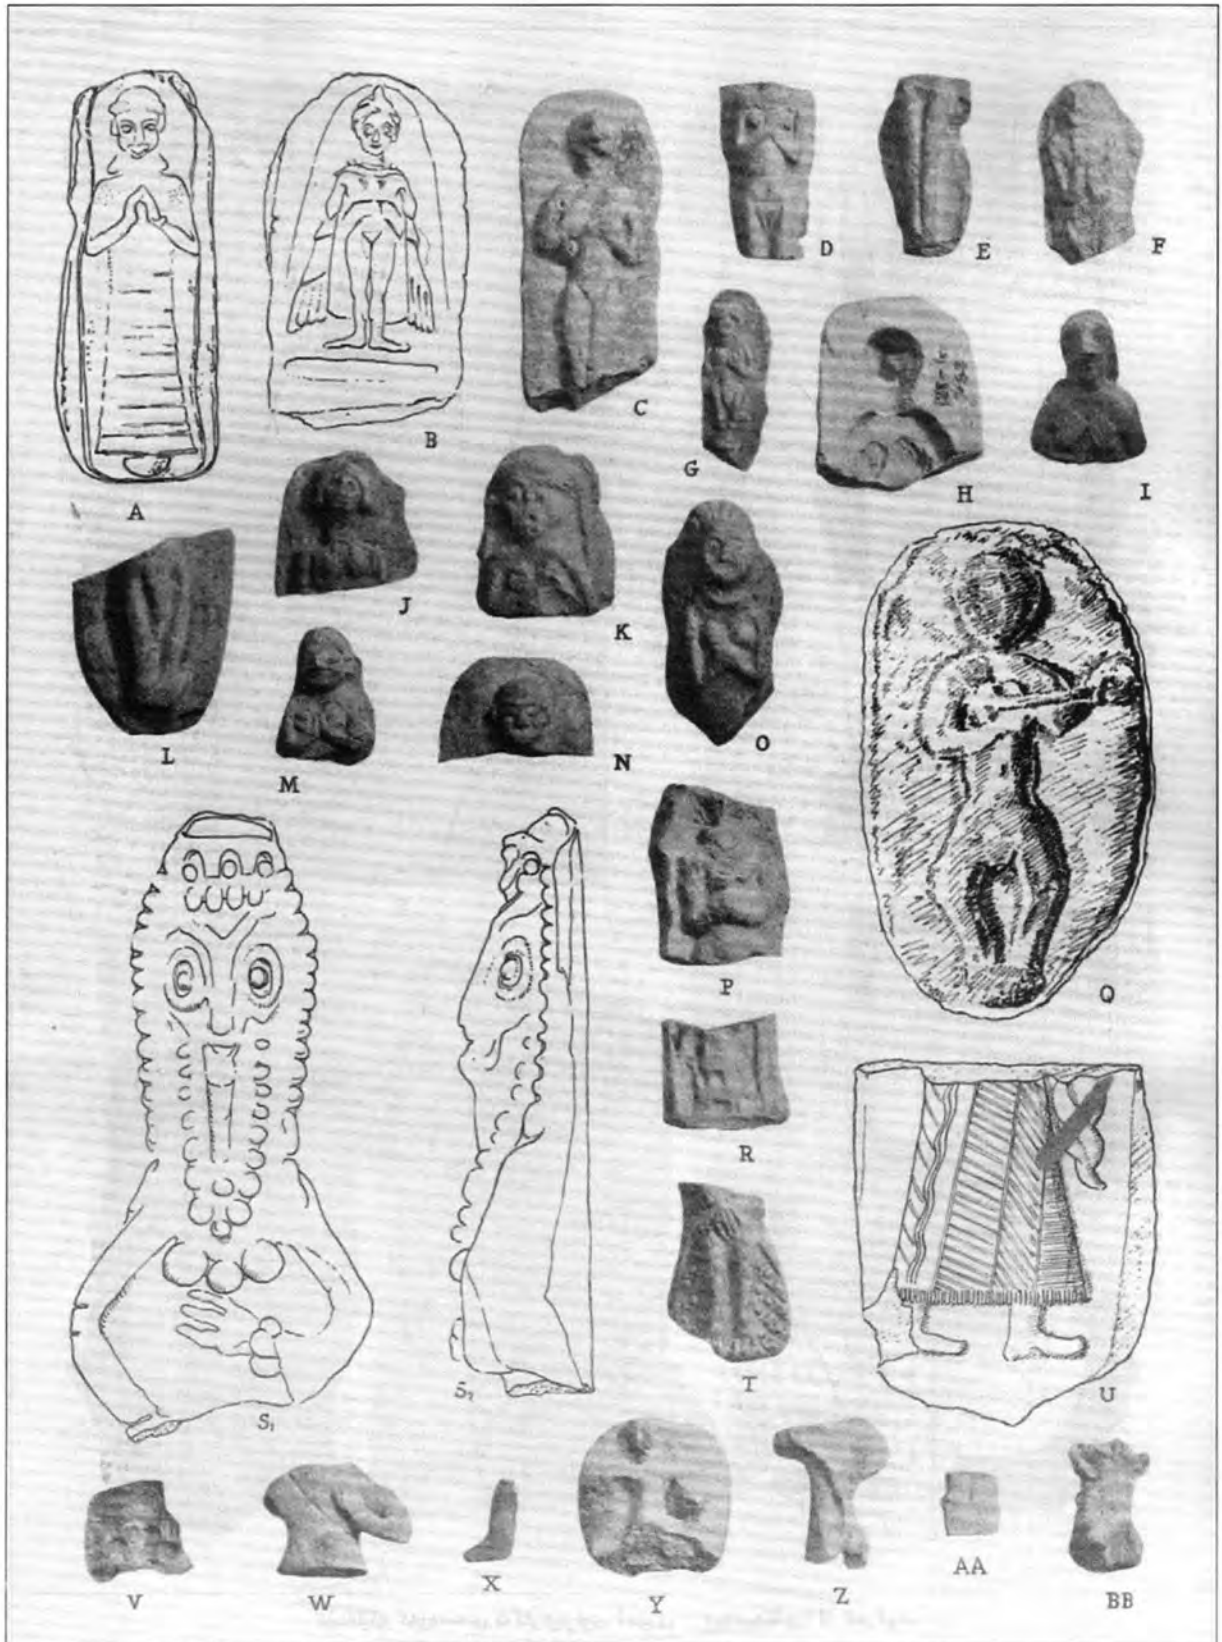 A
B
C
D
E
F
G
H
I
J
K
L
M
N
O
P
Q
R
S₁
S₂
T
U
V
W
X
Y
Z
AA
BB